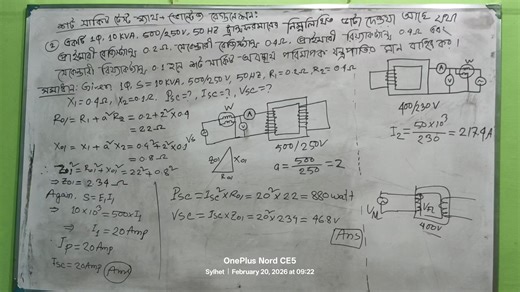 শর্ট সার্কিট টেস্ট
① একটি 1φ, 10 KVA, 500/250V, 50 HZ ট্রান্সফরমারের নিম্নলিখিত ডাটা দেওয়া আছে
প্রাইমারী রেজিস্ট্যান্স 0.2Ω, সেকেন্ডারী রেজিস্ট্যান্স 0.4Ω, প্রাইমারী রিয়্যাকট্যান্স 0.4Ω এবং
সেকেন্ডারী রিয়্যাকট্যান্স 0.1Ω হলে শর্ট সার্কিট অবস্থায় পরিমাপক যন্ত্রপাতির মান বাহির কর।
সমাধান: Given 1φ, S = 10 KVA, 500/250V, 50HZ, R₁ = 0.2Ω, R₂ = 0.4Ω
X₁ = 0.4Ω, X₂ = 0.1Ω. Psc = ?, Isc = ?, Vsc = ?
R01 = R₁ + a²R₂ = 0.2 + 2² × 0.4
= 22Ω
X01 = X₁ + a²X₂ = 0.4 + 2² × 0.1
= 0.8Ω
∴ Z01² = R01² + X01² = 22² + 0.8²
⇒ Z01 = 2.34Ω
Again, S = E₁I₁
⇒ 10 × 10³ = 500 × I₁
⇒ I₁ = 20 Amp
Ip = 20 Amp
Isc = 20 Amp Ans
W
A
500/250V
a = 500/250 = 2
Z01
X01
R01
Psc = Isc² × R01 = 20² × 22 = 880 watt
Vsc = Isc × Z01 = 20 × 234 = 468 V
Ans
W
A
400/230V
I₂ = 50 × 10³/230 = 217.4A
400V
OnePlus Nord CE5
Sylhet | February 20, 2026 at 09:22